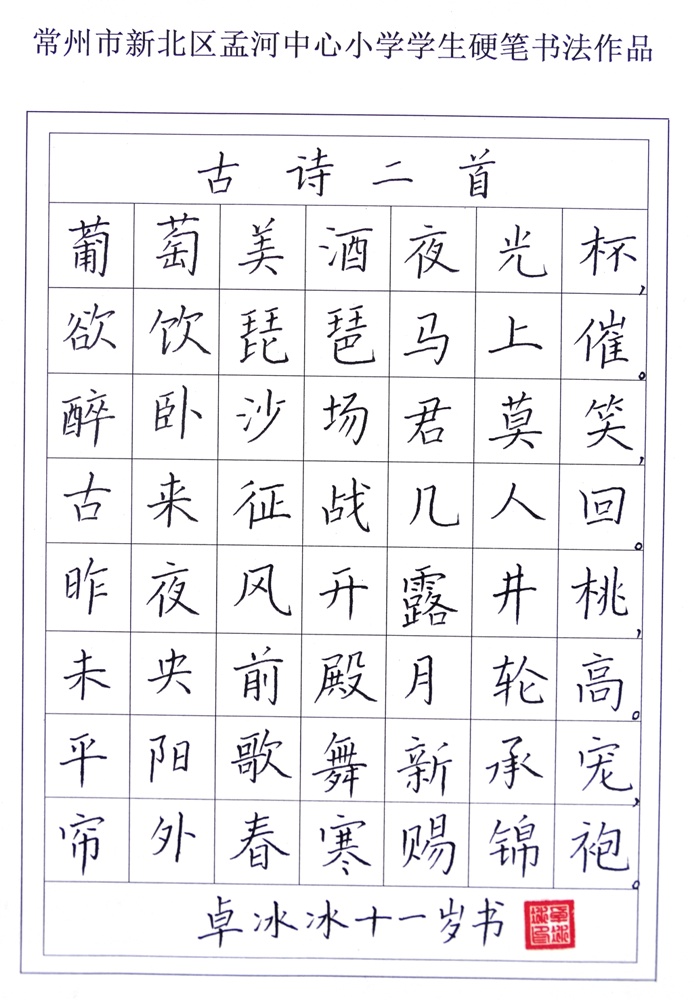 常州市新北区孟河中心小学学生硬笔书法作品
古诗二首
葡萄美酒夜光杯，
欲饮琵琶马上催。
醉卧沙场君莫笑，
古来征战几人回。
昨夜风开露井桃，
未央前殿月轮高。
平阳歌舞新承宠，
帘外春寒赐锦袍。
卓冰冰十一岁书